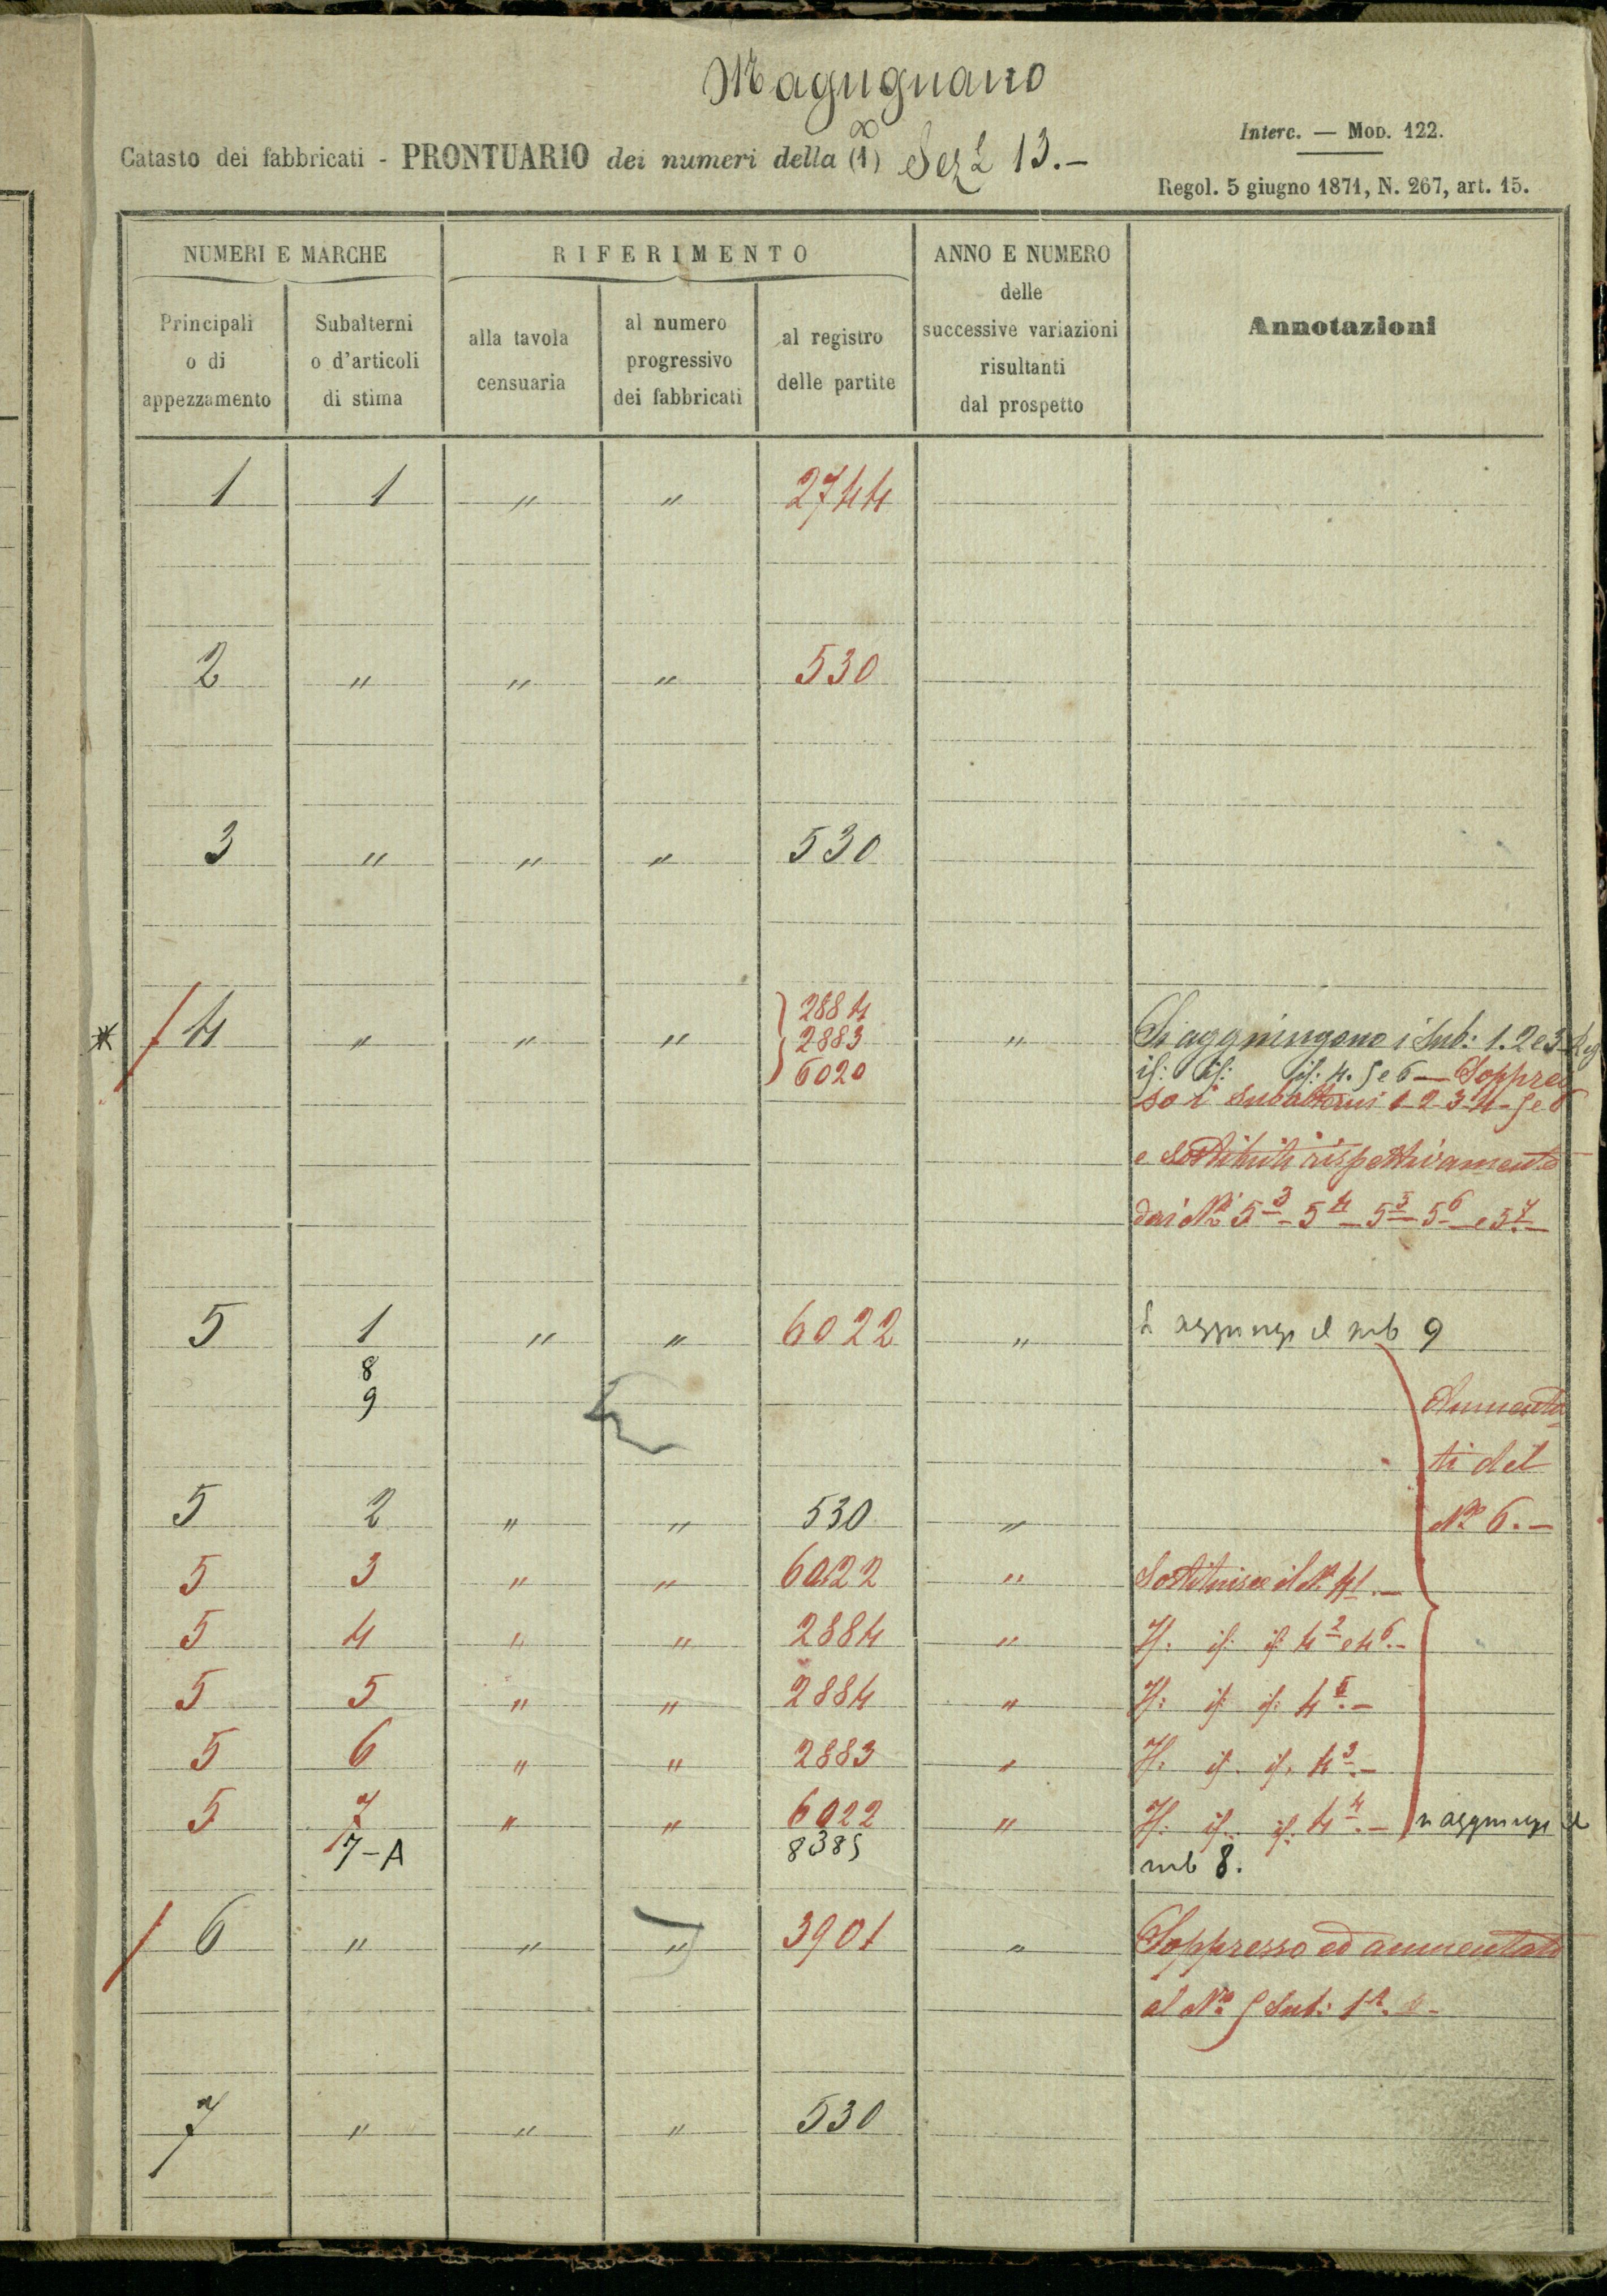 Magugnano
Catasto dei fabbricati - PRONTUARIO dei numeri della (1) Sez.e 13.-
Interc. — Mod. 122.
Regol. 5 giugno 1871, N. 267, art. 15.
NUMERI E MARCHE
RIFERIMENTO
ANNO E NUMERO delle successive variazioni risultanti dal prospetto
Annotazioni
Principali o di appezzamento
Subalterni o d'articoli di stima
alla tavola censuaria
al numero progressivo dei fabbricati
al registro delle partite
1 1 " " 2744
2 " " " 530
3 " " " 530
4 " " " 2884 " Si aggiungono i Sub: 1. 2 e 3
2883 id: id: id: 4. 5 e 6 — Soppres
6020 so i Subalterni 1-2-3-4-5 e 6
e sostituiti rispettivamente
dai Ni 5 3 - 5 4 - 5 5 - 5 6 e 5 7 -
5 1 " " 6022 " Si aggiunge il sub 9
8
9
Aumenta
ti del
No 6.-
5 2 " " 530 "
5 3 " " 6022 " Sostituisce il No 4 1.-
5 4 " " 2884 " Id. id: id: 4 2 e 4 6.-
5 5 " " 2884 " Id: id: id: 4 5.-
5 6 " " 2883 " Id: id. id. 4 3.-
5 7 " " 6022 " Id: id. id: 4 4.- si aggiunge il
7-A 8385 sub 8.
6 " " " 3901 " Soppresso ed aumentato
al No 5 Sub: 1
7 " " " 530